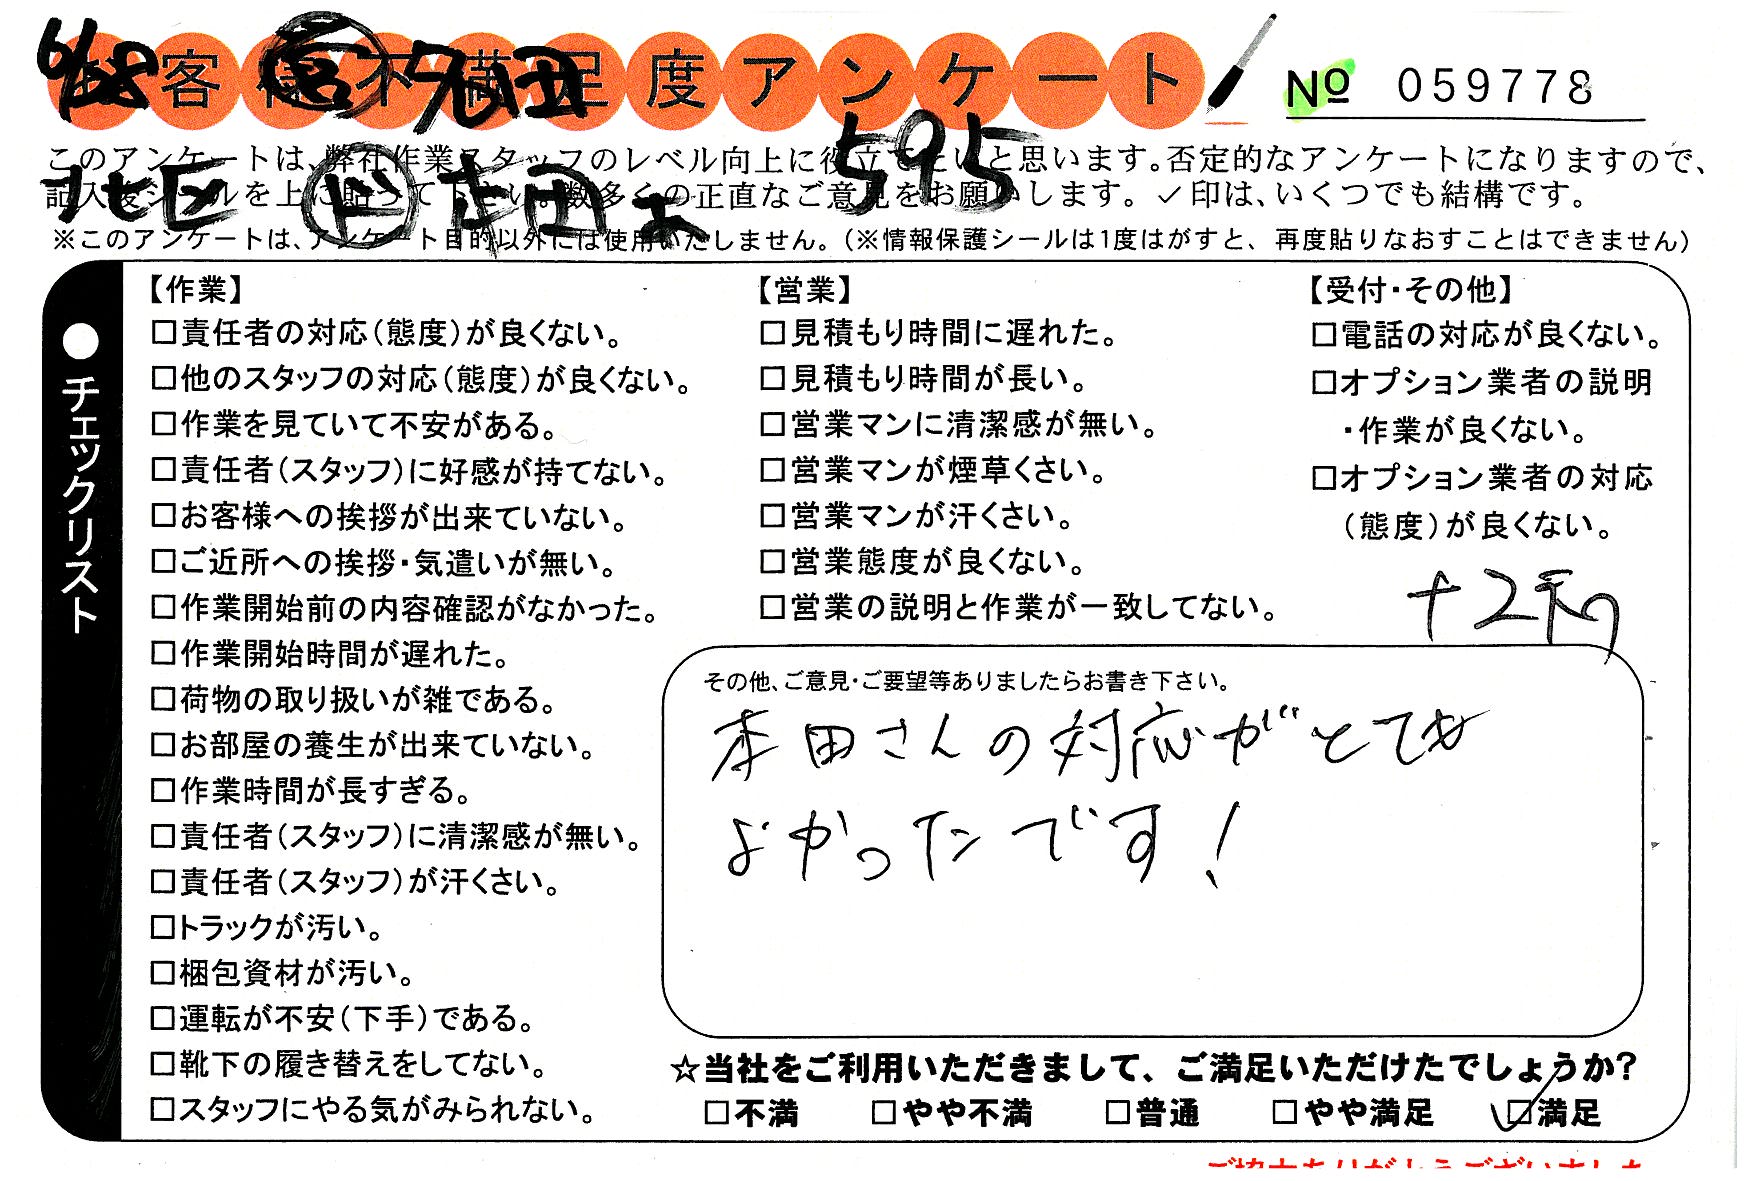 6/28
お客様不満足度アンケート
№ 059778
595
このアンケートは、弊社作業スタッフのレベル向上に役立てたいと思います。否定的なアンケートになりますので、
記入後シールを上に貼って下さい。数多くの正直なご意見をお願いします。✓印は、いくつでも結構です。
北区
※このアンケートは、アンケート目的以外には使用いたしません。(※情報保護シールは1度はがすと、再度貼りなおすことはできません)
●チェックリスト
【作業】
□責任者の対応(態度)が良くない。
□他のスタッフの対応(態度)が良くない。
□作業を見ていて不安がある。
□責任者(スタッフ)に好感が持てない。
□お客様への挨拶が出来ていない。
□ご近所への挨拶・気遣いが無い。
□作業開始前の内容確認がなかった。
□作業開始時間が遅れた。
□荷物の取り扱いが雑である。
□お部屋の養生が出来ていない。
□作業時間が長すぎる。
□責任者(スタッフ)に清潔感が無い。
□責任者(スタッフ)が汗くさい。
□トラックが汚い。
□梱包資材が汚い。
□運転が不安(下手)である。
□靴下の履き替えをしてない。
□スタッフにやる気がみられない。
【営業】
□見積もり時間に遅れた。
□見積もり時間が長い。
□営業マンに清潔感が無い。
□営業マンが煙草くさい。
□営業マンが汗くさい。
□営業態度が良くない。
□営業の説明と作業が一致してない。
【受付・その他】
□電話の対応が良くない。
□オプション業者の説明
・作業が良くない。
□オプション業者の対応
(態度)が良くない。
その他、ご意見・ご要望等ありましたらお書き下さい。
本田さんの対応がとても
よかったです!
☆当社をご利用いただきまして、ご満足いただけたでしょうか?
□不満 □やや不満 □普通 □やや満足 □満足
ご協力ありがとうございました